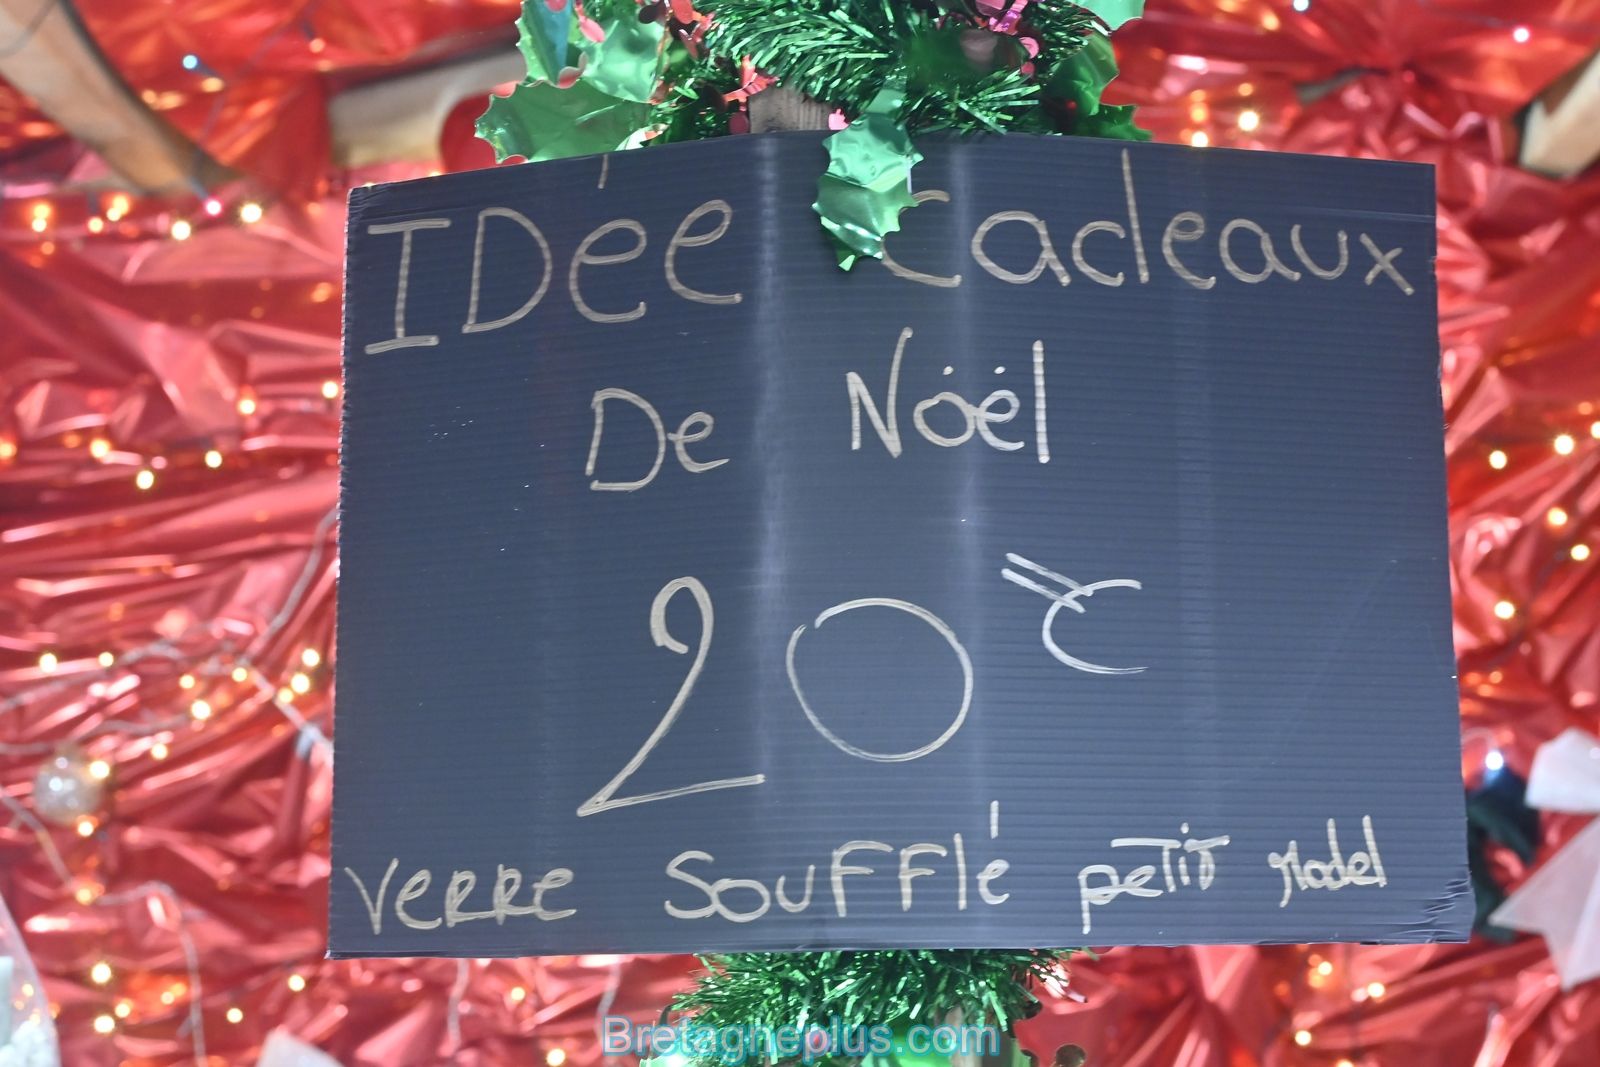 IDéE Cadeaux
De Nöël
20 €
Verre Soufflé petit Model
Bretagneplus.com